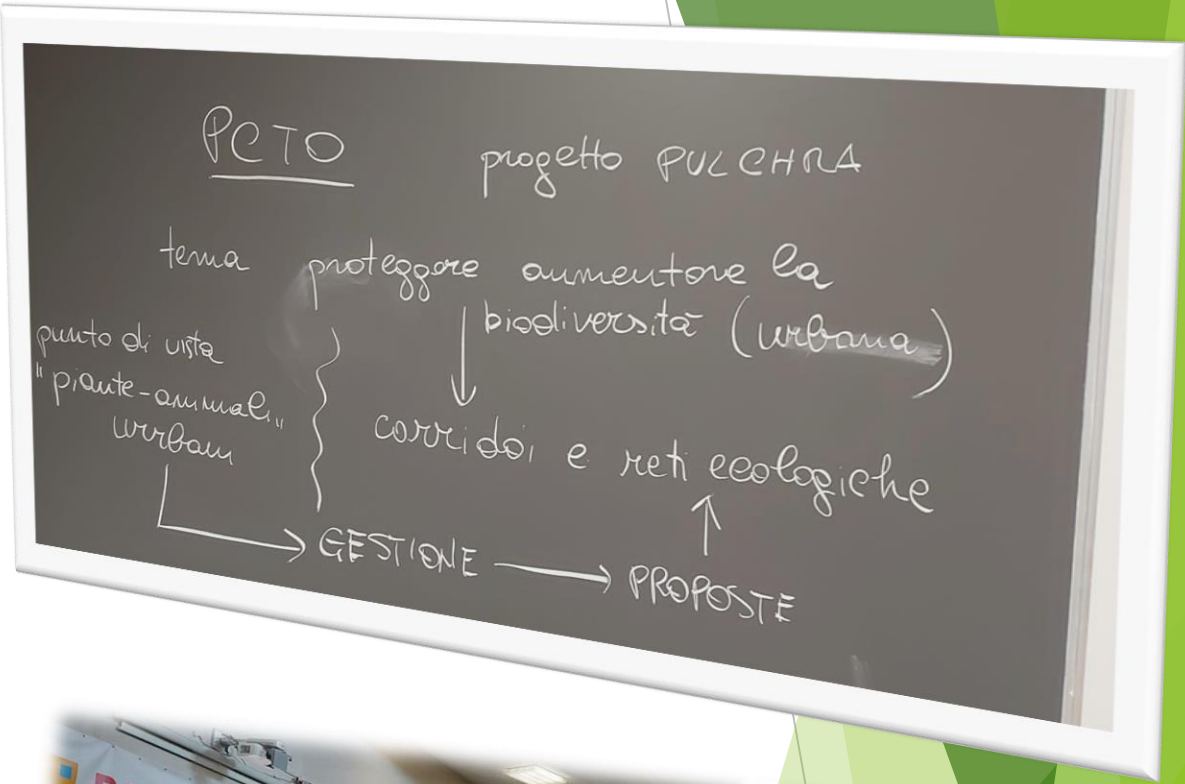 PCTO
progetto PULCHRA
tema proteggere aumentare la
biodiversità (urbana)
punto di vista
"piante-animali"
urbani
corridoi e reti ecologiche
GESTIONE
PROPOSTE